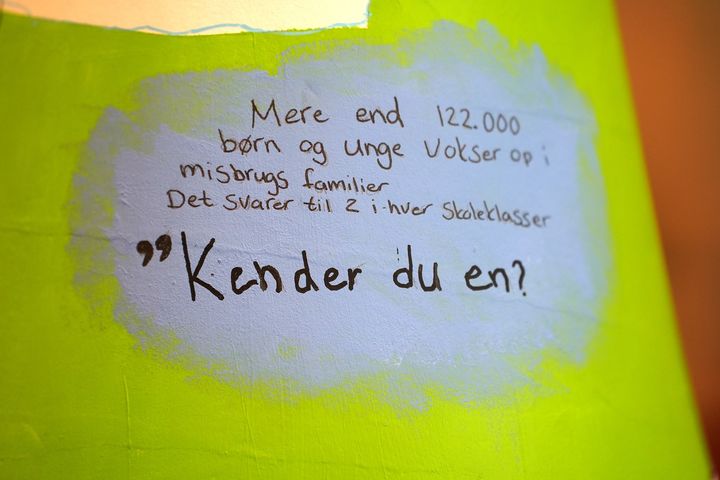 Mere end 122.000
børn og unge Vokser op i
misbrugs familier
Det svarer til 2 i hver Skoleklasser
”Kender du en?